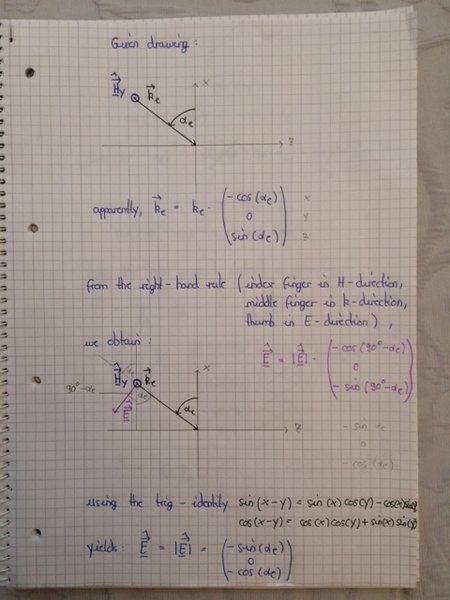 Given drawing:
Ĥ⃗y k⃗e
x
αe
z
apparently, k⃗e = ke · (-cos(αe) x
0 y
sin(αe)) z
from the right-hand rule (index finger in H-direction,
middle finger in k-direction,
thumb in E-direction),
we obtain:
Ê⃗ = |Ê⃗| · (-cos(90°-αe)
0
-sin(90°-αe))
x
Ĥ⃗y k⃗e
90°-αe
αe
αe
z
-sin αe
0
-cos(αe)
using the trig-identity sin(x-y) = sin(x)cos(y) - cos(x)sin(y)
cos(x-y) = cos(x)cos(y) + sin(x)sin(y)
yields: Ê⃗ = |Ê⃗| = (-sin(αe)
0
-cos(αe))